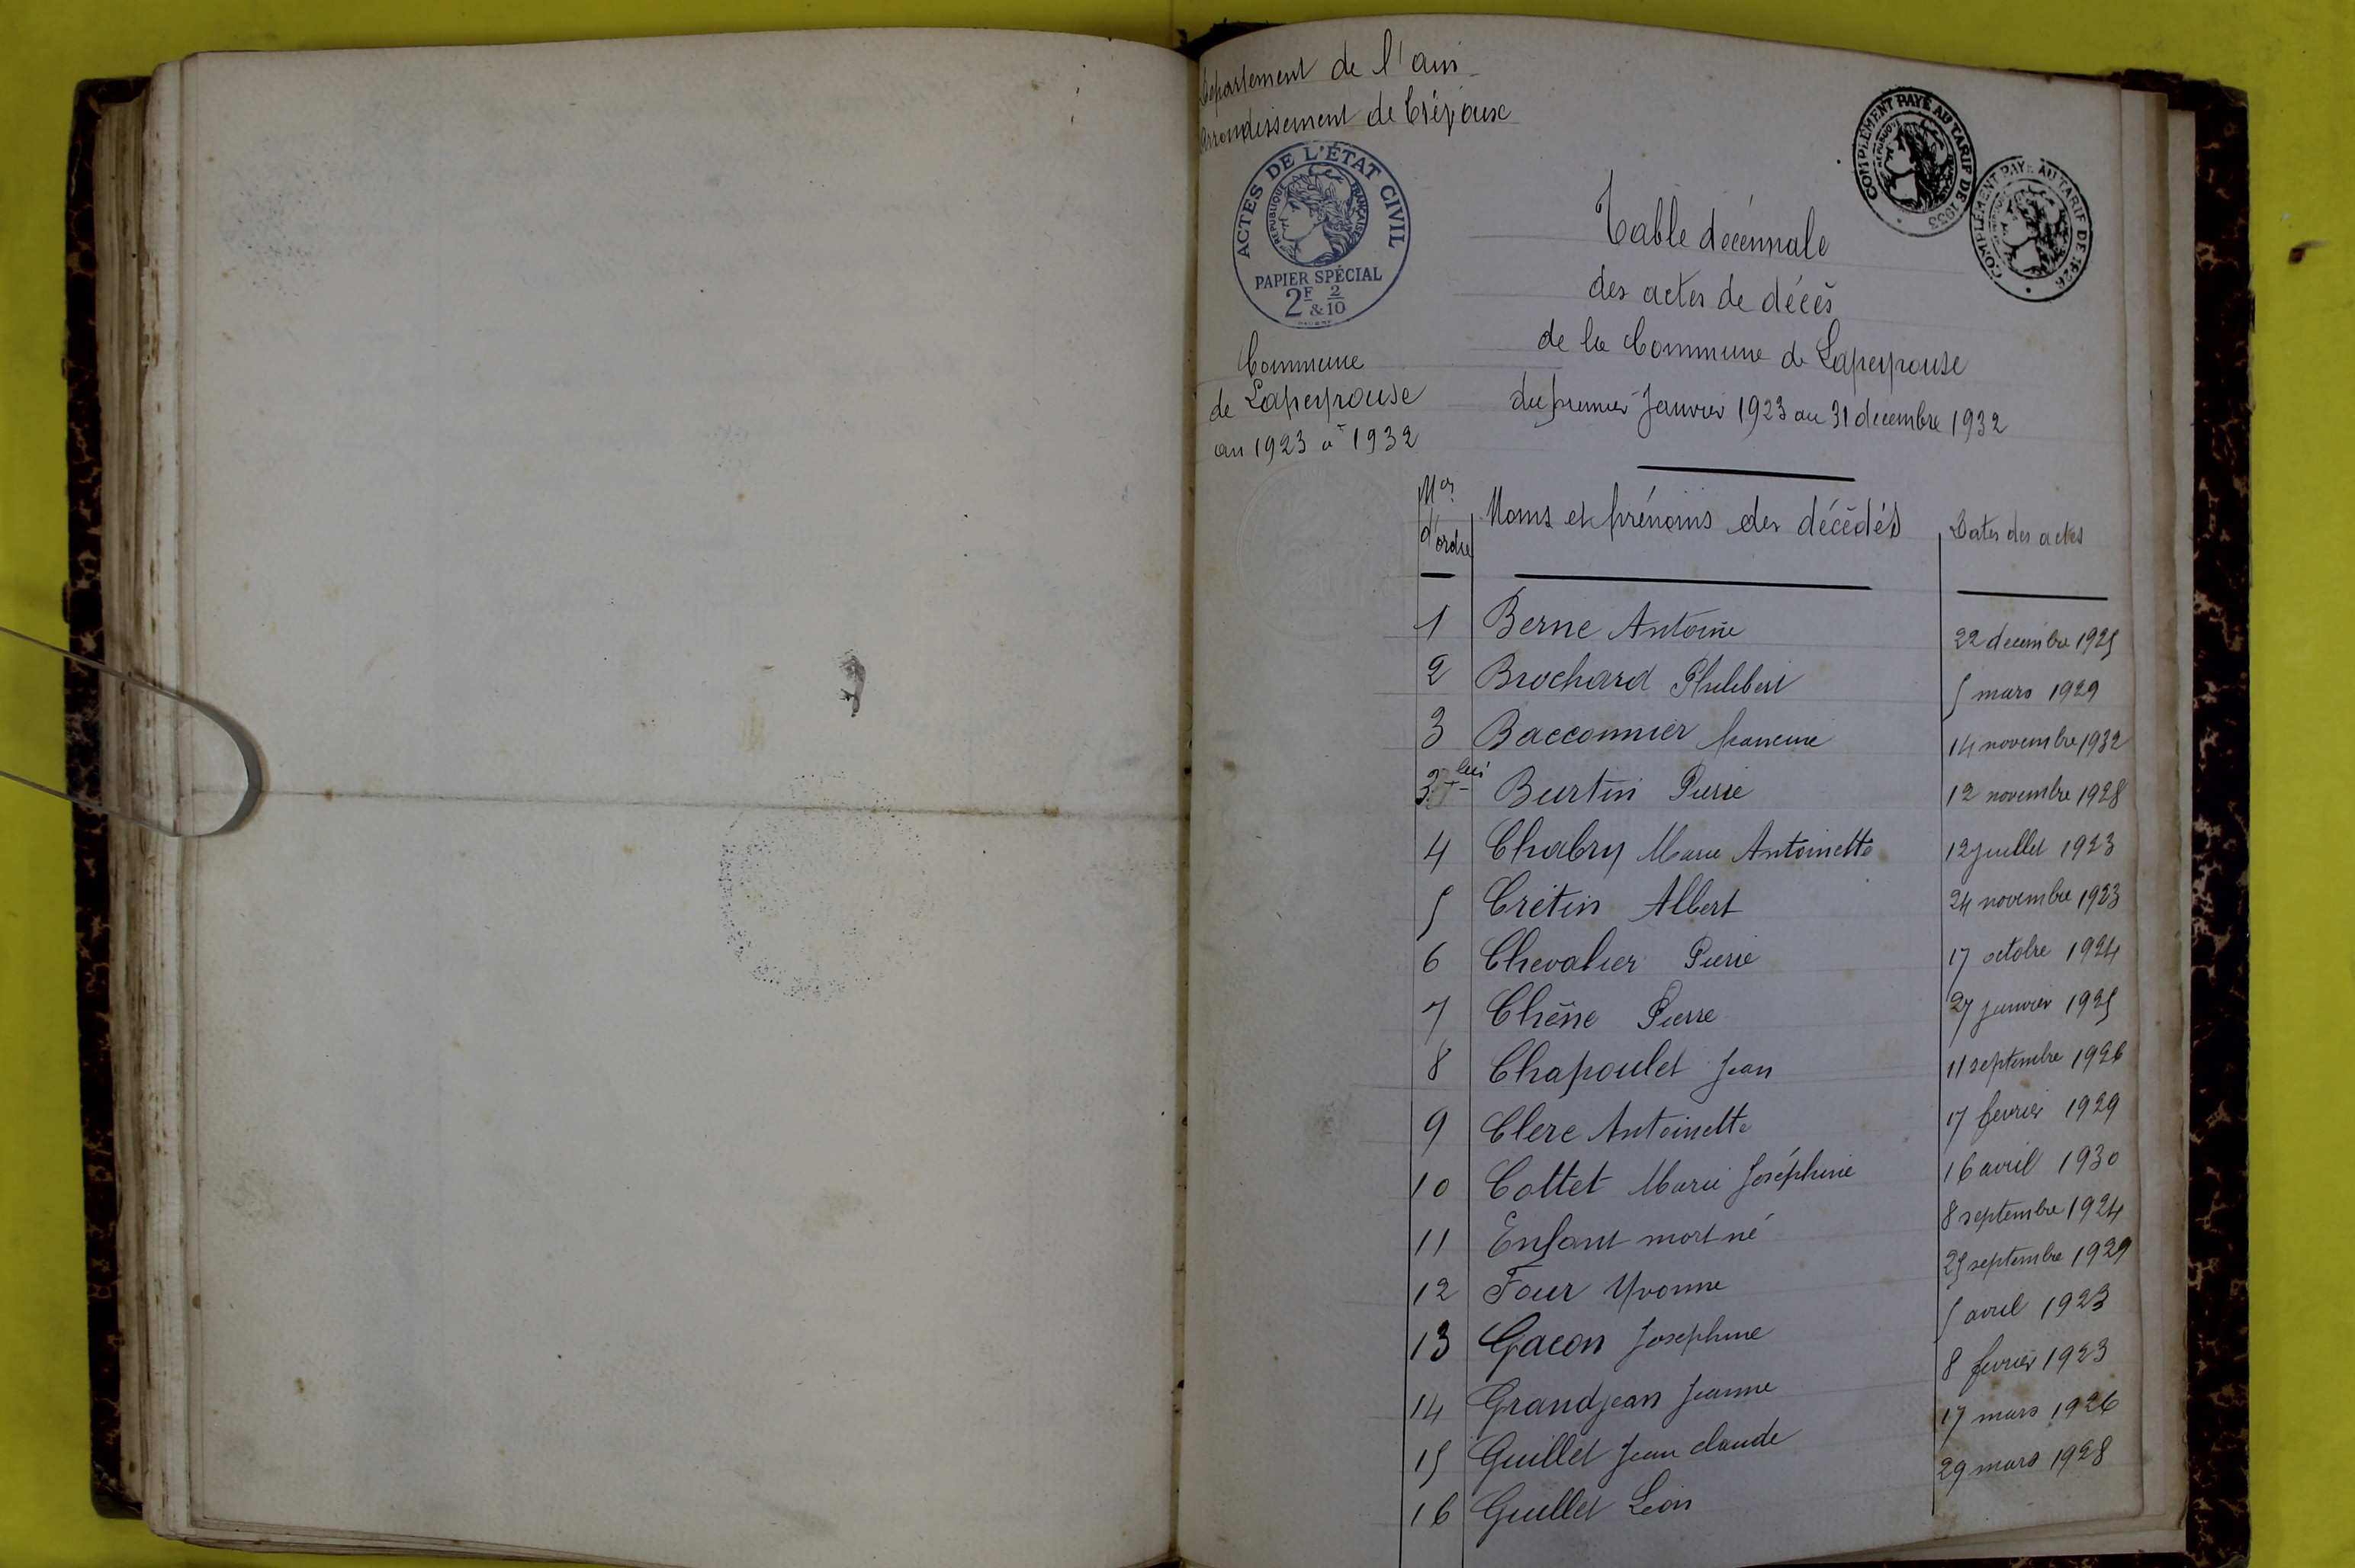 Departement de l'ain
Arrondissement de Trévoux
ACTES DE L'ÉTAT CIVIL
RÉPUBLIQUE FRANÇAISE
PAPIER SPÉCIAL
2F & 2/10
COMPLÉMENT PAYÉ AU TARIF DE 1933
COMPLÉMENT PAYÉ AU TARIF DE 1926
Commune
de Lapeyrouse
an 1923 à 1932
Table décennale
des actes de décès
de la Commune de Lapeyrouse
du premier Janvier 1923 au 31 decembre 1932
Nos d'ordre Noms et prénoms des décédés Dates des actes
1 Berne Antoine 22 decembre 1925
2 Brochard Philibert 5 mars 1929
3 Bacconnier francine 14 novembre 1932
3 bis Burtin Pierre 12 novembre 1928
4 Chabry Marie Antoinette 12 juillet 1923
5 Cretin Albert 24 novembre 1923
6 Chevalier Pierre 17 octobre 1924
7 Chêne Pierre 27 janvier 1925
8 Chapoulet Jean 11 septembre 1926
9 Clerc Antoinette 17 fevrier 1929
10 Cottet Marie Joséphine 16 avril 1930
11 Enfant mort né 8 septembre 1924
12 Four Yvonne 25 septembre 1929
13 Gacon Josephine 5 avril 1923
14 Grandjean Jeanne 8 fevrier 1923
15 Guillet Jean claude 17 mars 1926
16 Guillet Léon 29 mars 1928